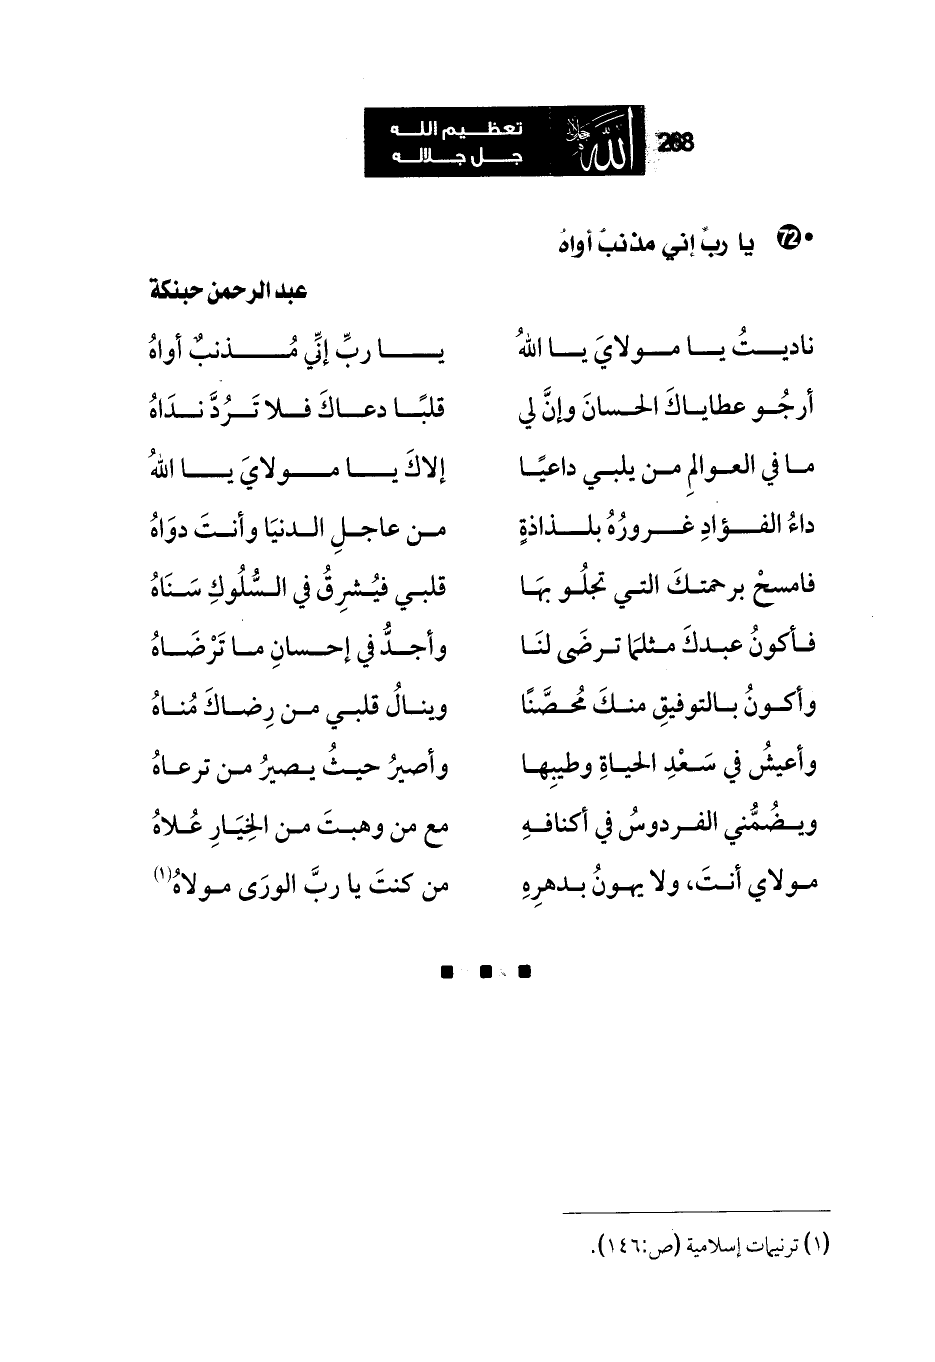 تعظيم الله
جل جلاله
الله جل جلاله
268
• 72 يا ربِّ إني مذنبٌ أواهُ
عبد الرحمن حبنكة
ناديتُ يا مولايَ يا اللهُ يا ربِّ إنِّي مُذنبٌ أواهُ
أرجُو عطاياكَ الحسانَ وإنَّ لي قلبًا دعاكَ فلا تَرُدَّ نداهُ
ما في العوالمِ من يلبي داعيًا إلاكَ يا مولايَ يا اللهُ
داءُ الفؤادِ غرورُهُ بلذاذةٍ من عاجلِ الدنيَا وأنتَ دوَاهُ
فامسحْ برحمتكَ التي تجلُو بهَا قلبي فيُشرِقُ في السُّلُوكِ سَنَاهُ
فأكونُ عبدكَ مثلمَا ترضَى لنَا وأجدُّ في إحسانِ ما تَرْضَاهُ
وأكونُ بالتوفيقِ منكَ مُحصَّنًا وينالُ قلبي من رِضاكَ مُناهُ
وأعيشُ في سَعْدِ الحياةِ وطيبِها وأصيرُ حيثُ يصيرُ من ترعاهُ
ويضُمُّني الفردوسُ في أكنافهِ مع من وهبتَ من الخِيَارِ عُلاهُ
مولاي أنتَ، ولا يهونُ بدهرِهِ من كنتَ يا ربَّ الورَى مولاهُ(١)
(١) ترنيمات إسلامية (ص:١٤٦).